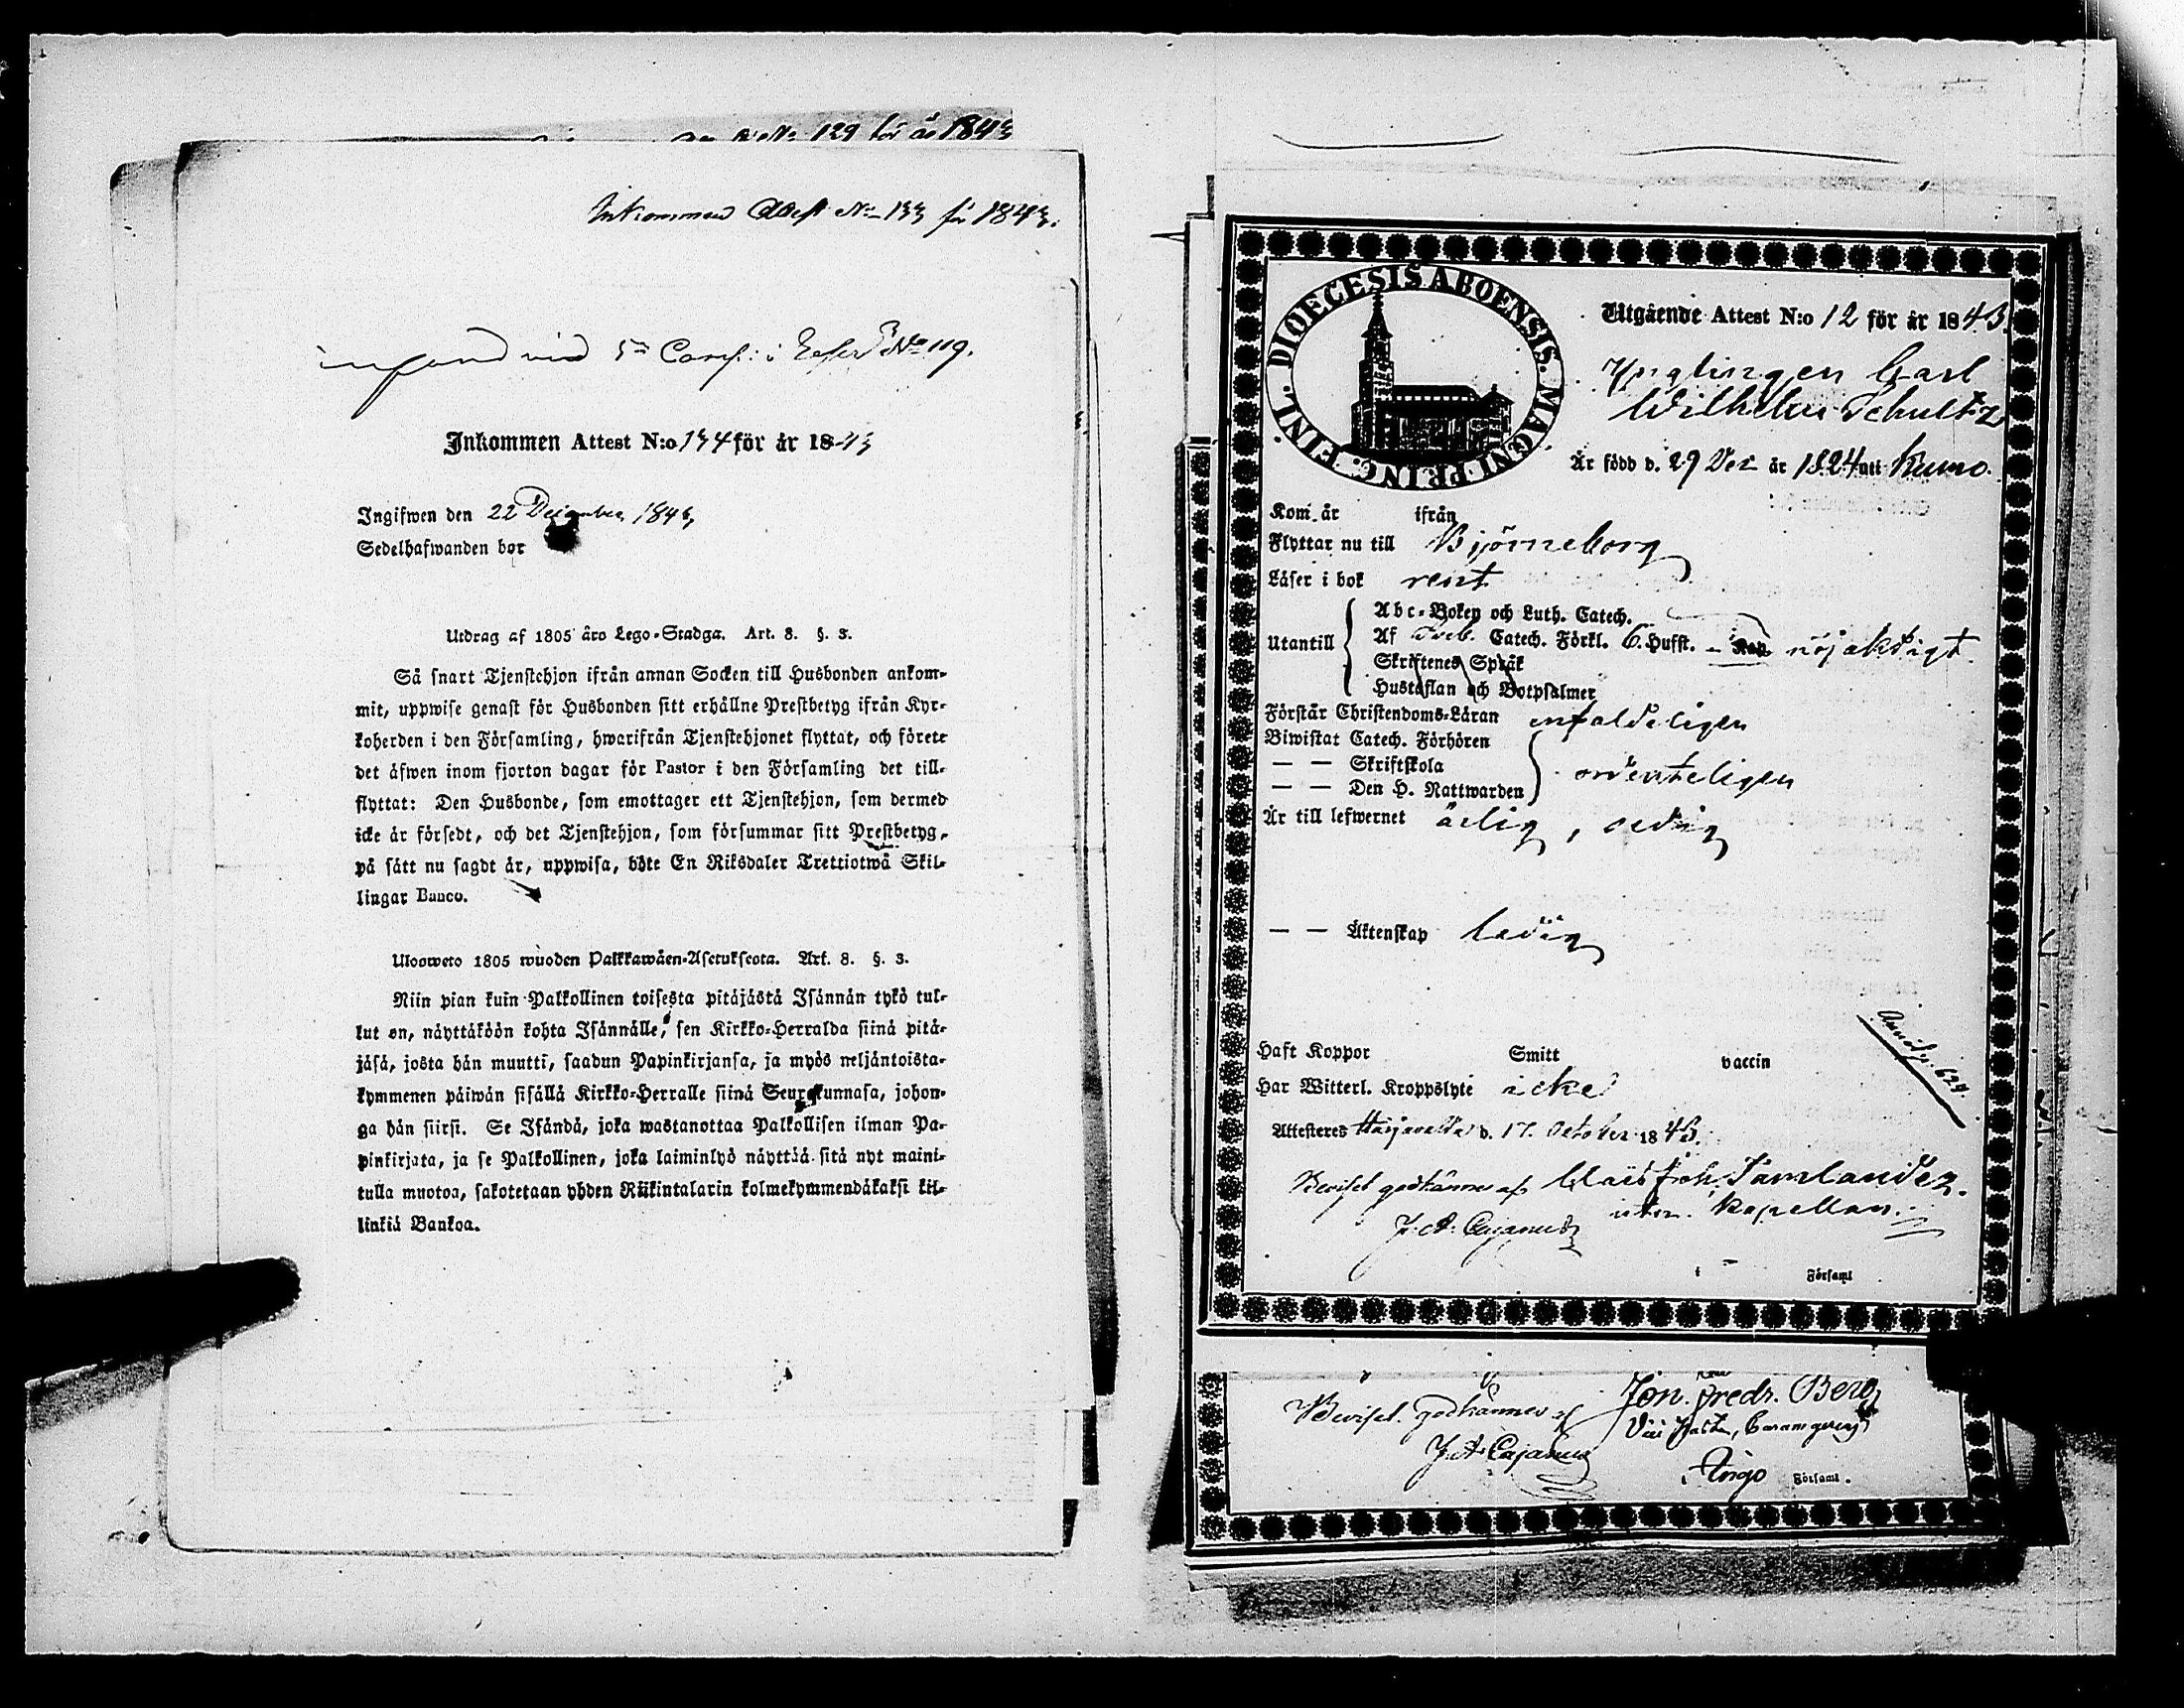 No 129 för år 1843
Inkommen Attest No 133 för 1843.
vid 5te Comp: i No 119.
Inkommen Attest N:o 134 för år 1843
Ingifwen den 22 December 1843
Sedelhafwanden bor
Utdrag af 1805 års Lego-Stadga. Art. 8. §. 3.
Så snart Tjenstehjon ifrån annan Socken till Husbonden ankom-
mit, uppwise genast för Husbonden sitt erhållne Prestbetyg ifrån Kyr-
koherden i den Församling, hwarifrån Tjenstehjonet flyttat, och förete
det äfwen inom fjorton dagar för Pastor i den Församling det till-
flyttat: Den Husbonde, som emottager ett Tjenstehjon, som dermed
icke är försedt, och det Tjenstehjon, som försummar sitt Prestbetyg,
på sätt nu sagdt är, uppwisa, böte En Riksdaler Trettiotwå Skil-
lingar Banco.
Ulosweto 1805 wuoden Palkkawäen-Asetuksesta. Art. 8. §. 3.
Niin pian kuin Palkollinen toisesta pitäjästä Isännän tykö tul-
lut on, näyttäköön kohta Isännälle, sen Kirkko-Herralda siinä pitä-
jäsä, josta hän muutti, saadun Papinkirjansa, ja myös neljäntoista-
kymmenen päiwän sisällä Kirkko-Herralle siinä Seurakunnasa, johon-
ga hän siirsi. Se Isändä, joka wastanottaa Palkollisen ilman Pa-
pinkirjata, ja se Palkollinen, joka laiminlyö näyttää sitä nyt maini-
tulla muotoa, sakotetaan yhden Riikintalarin kolmekymmendäkaksi kil-
linkiä Bankoa.
DIOECESIS ABOENSIS. MAGNI PRINC. FINL.
Utgående Attest N:o 12 för år 1843.
Ynglingen Carl
Wilhelm Schultz
Är född d. 29 Dec år 1824 uti Kumo.
Kom år ifrån
Flyttar nu till Björneborg
Läser i bok rent
Utantill
Abc-Boken och Luth. Catech.
Af Sveb. Catech. Förkl. 6. Hufst. nöjaktigt.
Skriftenes Språk
Hustaflan och Botpsalmer
Förstår Christendoms-Läran enfaldeligen
Biwistat Catech. Förhören
— — Skriftskola
— — Den H. Nattwarden
ordenteligen
Är till lefwernet ärlig, sedig
— — Äktenskap ledig
Haft Koppor Smitt vaccin
Har Witterl. Kroppslyte icke
Attesteres Harjavalda d. 17. October 1843.
Beviset godkännes af Claës Joh. Tamlander.
J. A. Cajanus
Kapellan.
i Församl
Beviset godkännes af
J. A. Cajanus
Jon. Fredr. Berg
i Församl.